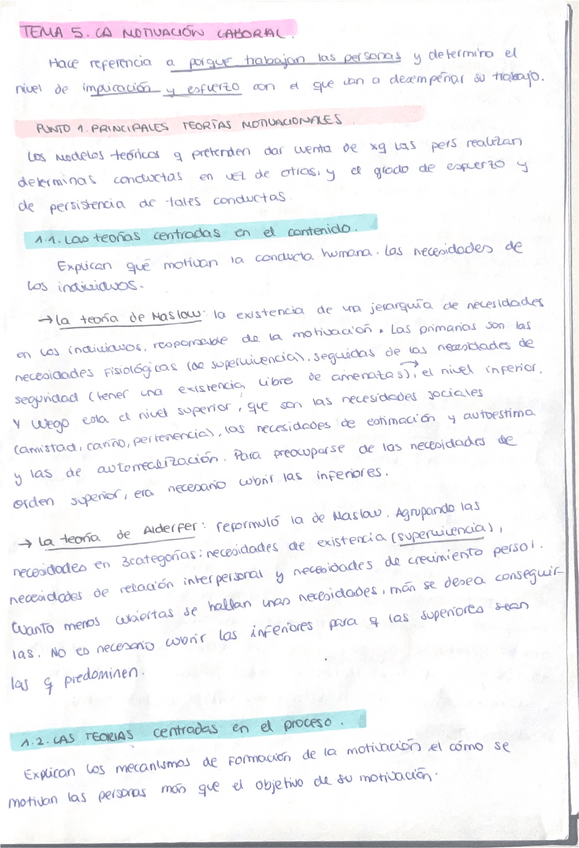 TEMA 5. LA MOTIVACIÓN LABORAL.
Hace referencia a porque trabajan las personas y determina el
nivel de implicación y esfuerzo con el que van a desempeñar su trabajo.
PUNTO 1. PRINCIPALES TEORÍAS MOTIVACIONALES
Los modelos teóricos q pretenden dar cuenta de xq las pers realizan
determinas conductas en vez de otras, y el grado de esfuerzo y
de persistencia de tales conductas.
1.1. Las teorías centradas en el contenido.
Explican qué motivan la conducta humana. Las necesidades de
los individuos.
→ La teoría de Maslow: la existencia de una jerarquía de necesidades
en los individuos, responsable de la motivación. Las primarias son las
necesidades fisiológicas (de supervivencia), seguidas de las necesidades de
seguridad (tener una existencia libre de amenazas), el nivel inferior.
Y luego esta el nivel superior, que son las necesidades sociales
(amistad, cariño, pertenencia), las necesidades de estimación y autoestima
y las de autorrealización. Para preocuparse de las necesidades de
orden superior, era necesario cubrir las inferiores.
→ La teoría de Alderfer: reformuló la de Maslow. Agrupando las
necesidades en 3 categorías: necesidades de existencia (supervivencia),
necesidades de relación interpersonal y necesidades de crecimiento persol.
Cuanto menos cubiertas se hallan unas necesidades, más se desea conseguir-
las. No es necesario cubrir las inferiores para q las superiores sean
las q predominen.
1.2. LAS TEORIAS centradas en el proceso.
Explican los mecanismos de formación de la motivación, el cómo se
motivan las personas más que el objetivo de su motivación.